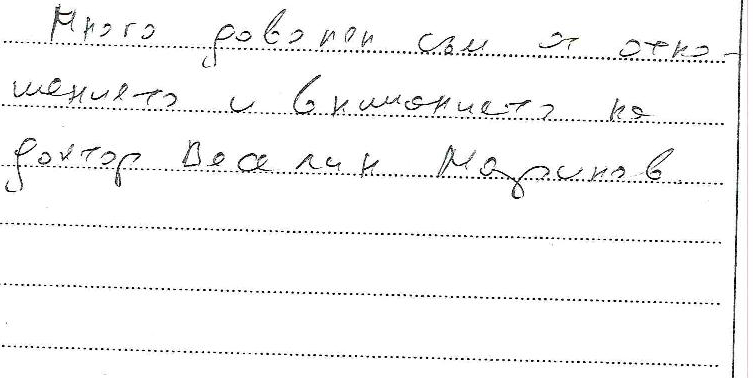 Много доволен съм от отно-
шението и вниманието на
доктор Веселин Маринов.